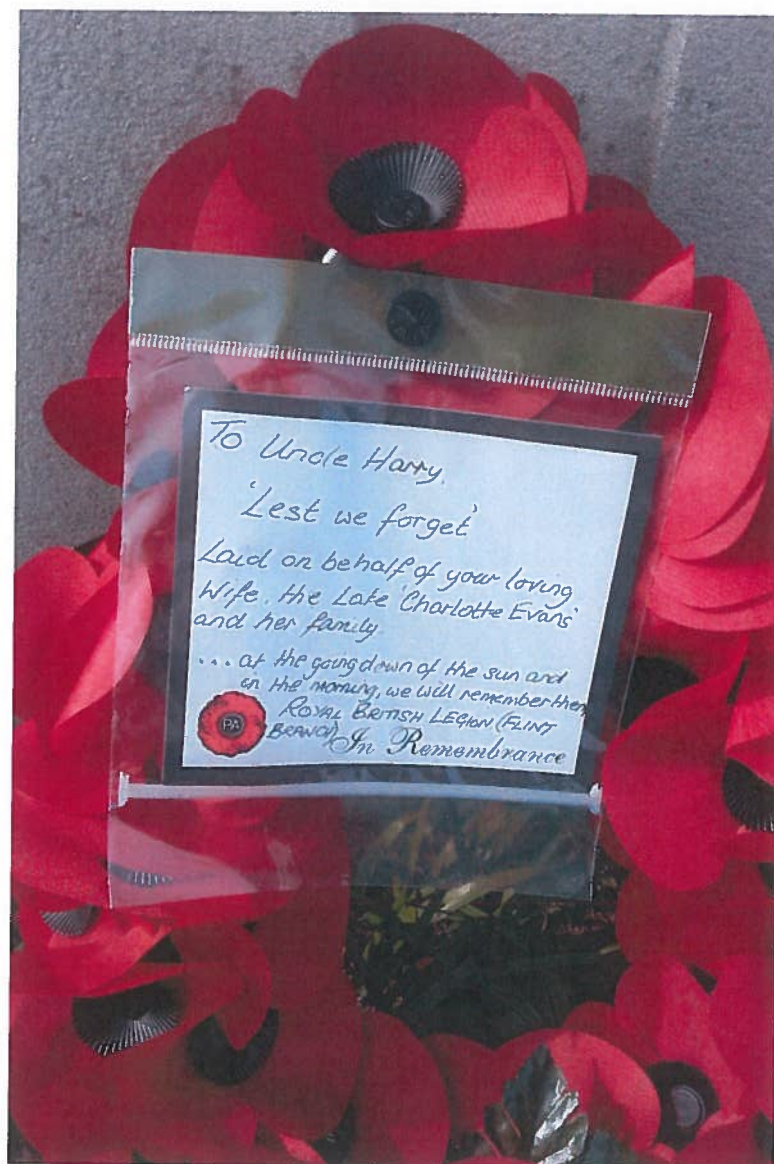 To Uncle Harry,
'Lest we forget'
Laid on behalf of your loving
Wife, the Late 'Charlotte Evans'
and her family.
... at the going down of the sun and
in the morning, we will remember them
ROYAL BRITISH LEGION (FLINT
BRANCH)
In Remembrance
PA